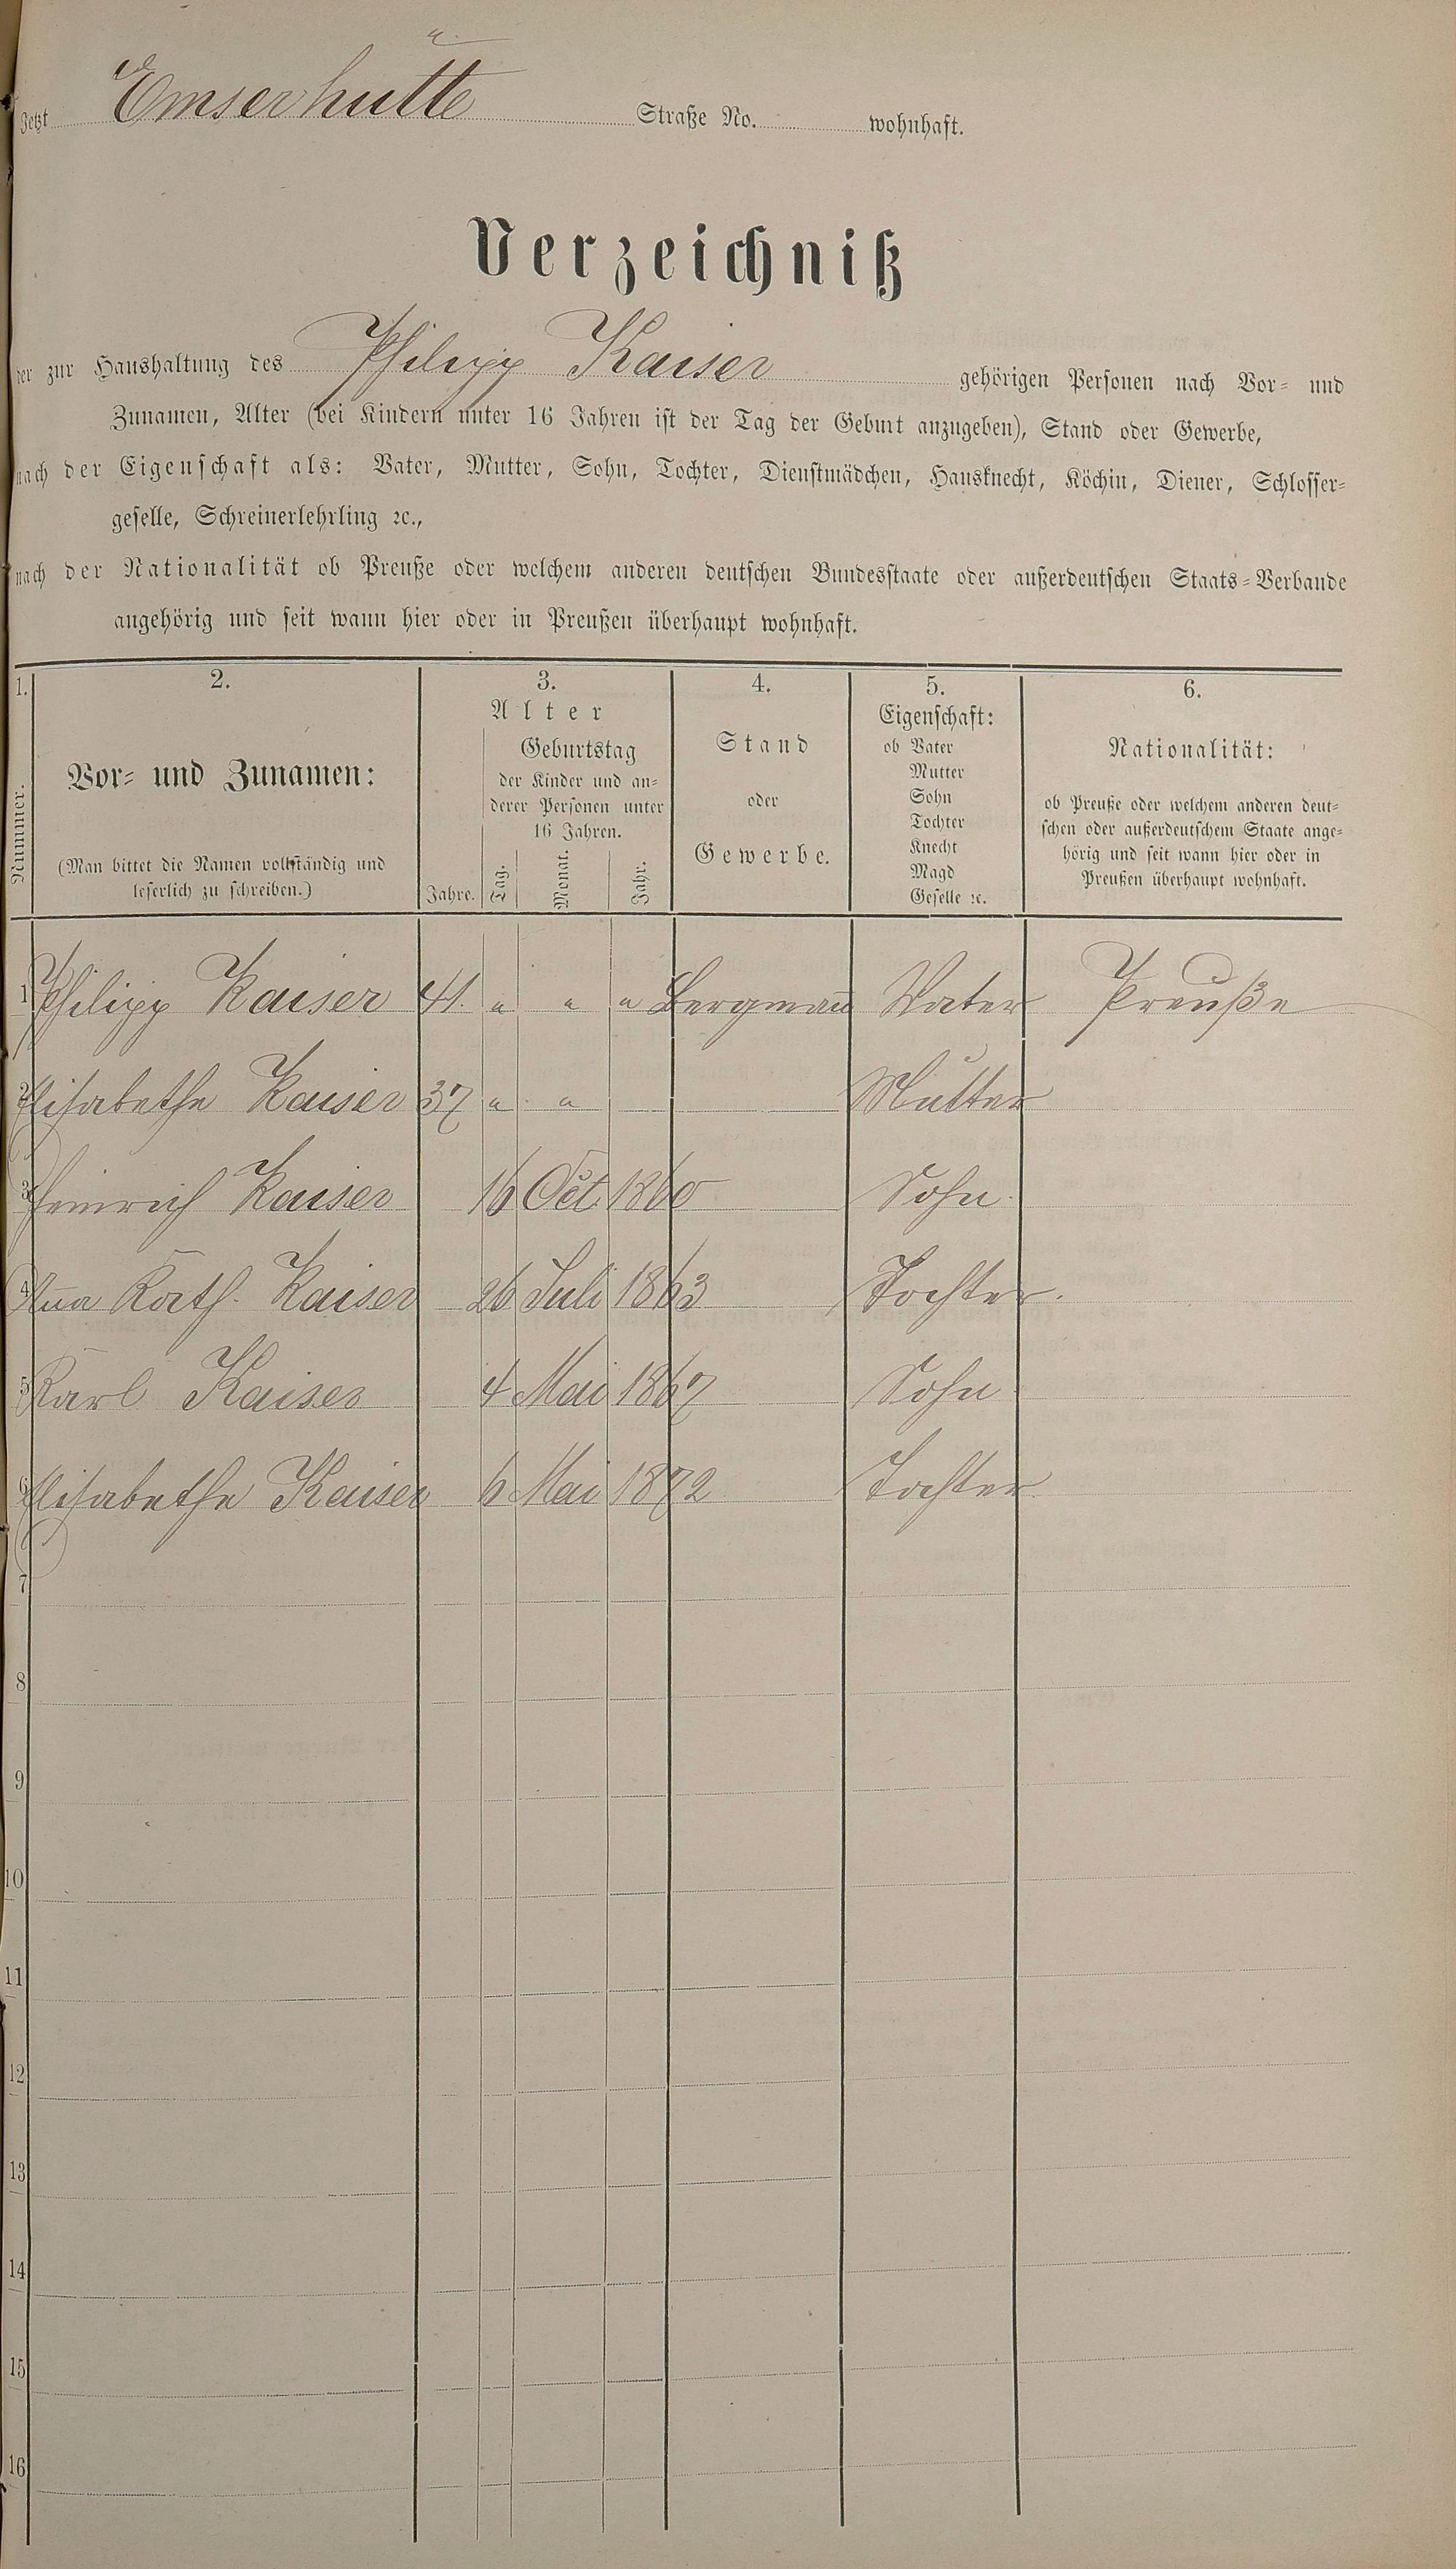 Jetzt Emserhütte Straße No. wohnhaft.
Verzeichniß
der zur Haushaltung des Philipp Kaiser gehörigen Personen nach Vor- und
Zunamen, Alter (bei Kindern unter 16 Jahren ist der Tag der Geburt anzugeben), Stand oder Gewerbe,
nach der Eigenschaft als: Vater, Mutter, Sohn, Tochter, Dienstmädchen, Hausknecht, Köchin, Diener, Schlosser-
geselle, Schreinerlehrling ꝛc.,
nach der Nationalität ob Preuße oder welchem anderen deutschen Bundesstaate oder außerdeutschen Staats-Verbande
angehörig und seit wann hier oder in Preußen überhaupt wohnhaft.
1.
Nummer.
2.
Vor- und Zunamen:
(Man bittet die Namen vollständig und
leserlich zu schreiben.)
3.
Alter
Jahre.
Geburtstag
der Kinder und an-
derer Personen unter
16 Jahren.
Tag. Monat. Jahr.
4.
Stand
oder
Gewerbe.
5.
Eigenschaft:
ob Vater
Mutter
Sohn
Tochter
Knecht
Magd
Geselle ꝛc.
6.
Nationalität:
ob Preuße oder welchem anderen deut-
schen oder außerdeutschem Staate ange-
hörig und seit wann hier oder in
Preußen überhaupt wohnhaft.
1 Philipp Kaiser 41. " " " Bergmañ Vater Preuße
2 Elisabethe Kaiser 37 " " Mutter
3 Heinrich Kaiser 16 Oct. 1860 Sohn.
4 Añа Kath. Kaiser 26 Juli 1863 Tochter.
5 Karl Kaiser 4 Mai 1867 Sohn
6 Elisabethe Kaiser 6 Mai 1872 Tochter
7
8
9
10
11
12
13
14
15
16